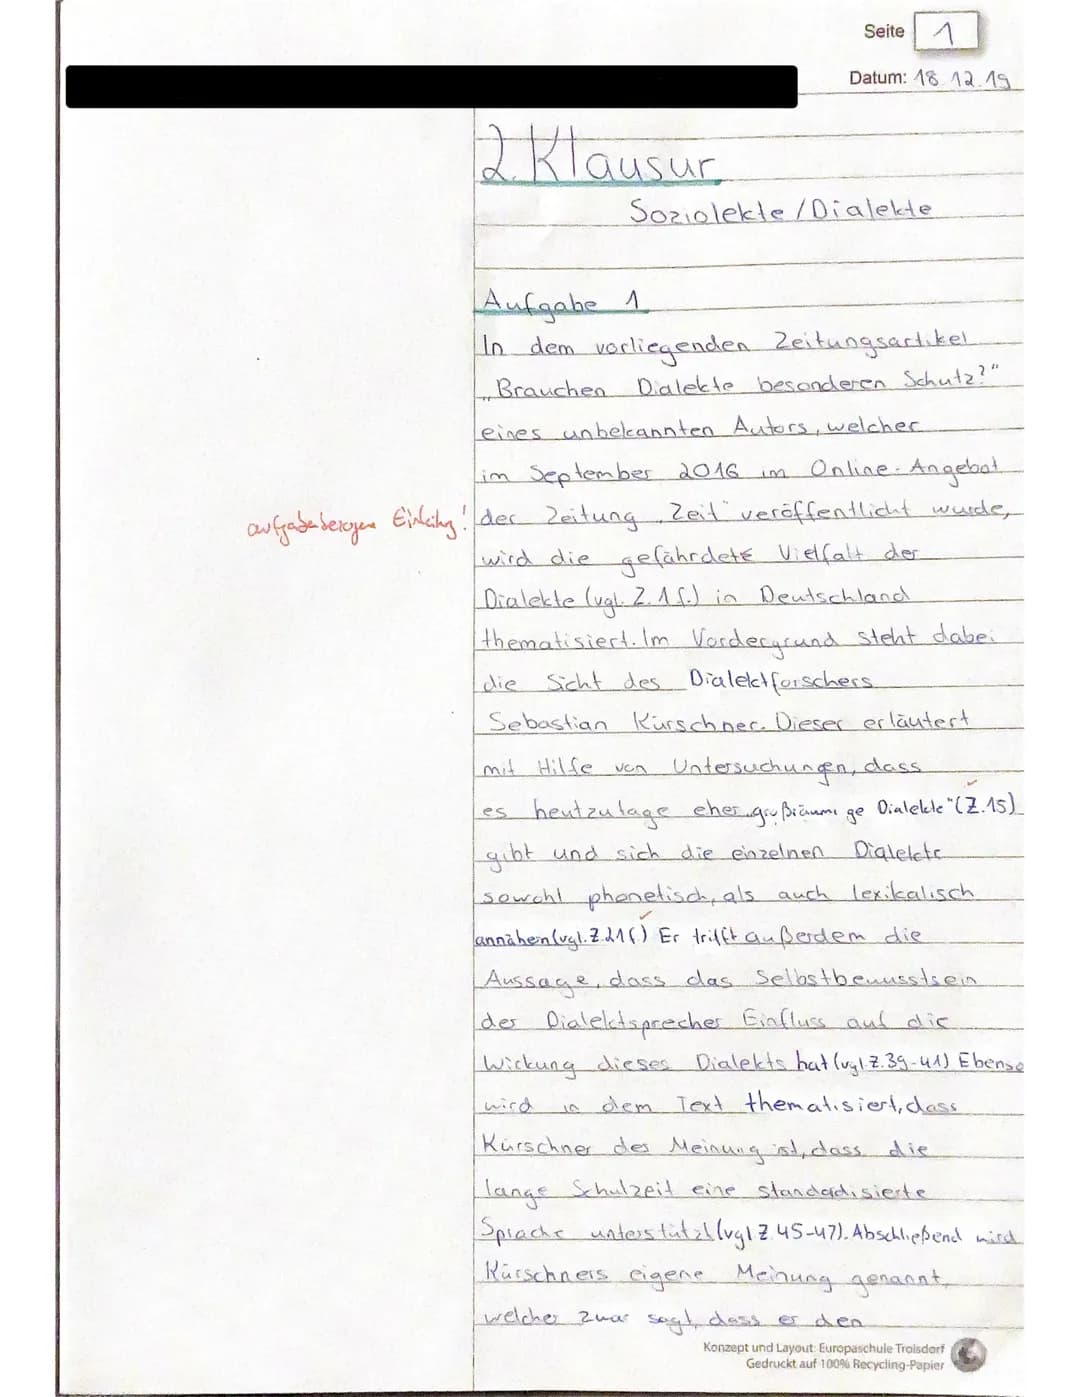 Seite 1
Datum: 18.12.19
2. Klausur
Soziolekte/Dialekte
Aufgabe 1
In dem vorliegenden Zeitungsartikel
„Brauchen Dialekte besonderen Schutz?"
eines unbekannten Autors, welcher
im September 2016 im Online-Angebot
aufgabebezogene Einleitung!
der Zeitung „Zeit" veröffentlicht wurde,
wird die gefährdete Vielfalt der
Dialekte (vgl. Z. 1 f.) in Deutschland
thematisiert. Im Vordergrund steht dabei
die Sicht des Dialektforschers
Sebastian Kürschner. Dieser erläutert
mit Hilfe von Untersuchungen, dass
es heutzutage eher „großräumige Dialekte" (Z.15)
gibt und sich die einzelnen Dialekte
sowohl phonetisch, als auch lexikalisch
annähen (vgl. Z.21f) Er trifft außerdem die
Aussage, dass das Selbstbewusstsein
der Dialektsprecher Einfluss auf die
Wirkung dieses Dialekts hat (vgl Z.39-41) Ebenso
wird in dem Text thematisiert, dass
Kürschner der Meinung ist, dass die
lange Schulzeit eine standardisierte
Sprache unterstützt (vgl Z.45-47). Abschließend wird
Kürschners eigene Meinung genannt,
welcher zwar sagt, dass er den
Konzept und Layout: Europaschule Troisdorf
Gedruckt auf 100% Recycling-Papier